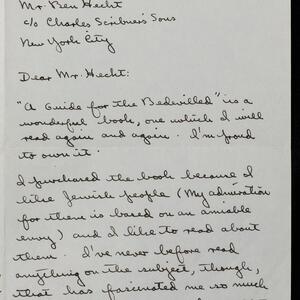 Mr. Ben Hecht
c/o Charles Scribner's Sons
New York City
Dear Mr. Hecht:
"A Guide for the Bedevilled" is a
wonderful book, one which I will
read again and again. I'm proud
to own it.
I purchased the book because I
like Jewish people (My admiration
for them is based on an amiable
envy) and I like to read about
them. I've never before read
anything on the subject, though,
that has fascinated me so much